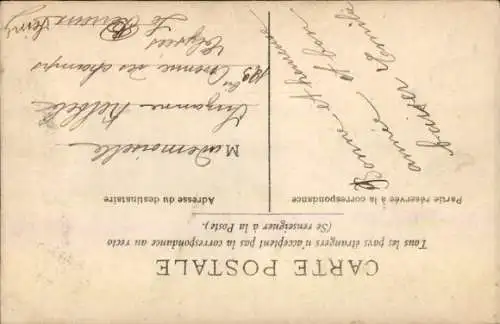 CARTE POSTALE
Tous les pays étrangers n'acceptent pas la correspondance au recto
(Se renseigner à la Poste).
Partie réservée à la correspondance
Adresse du destinataire
Bonne et heureuse
année et bon
baiser Emile
Mademoiselle
Suzanne
109 Avenue des champs
Elysées